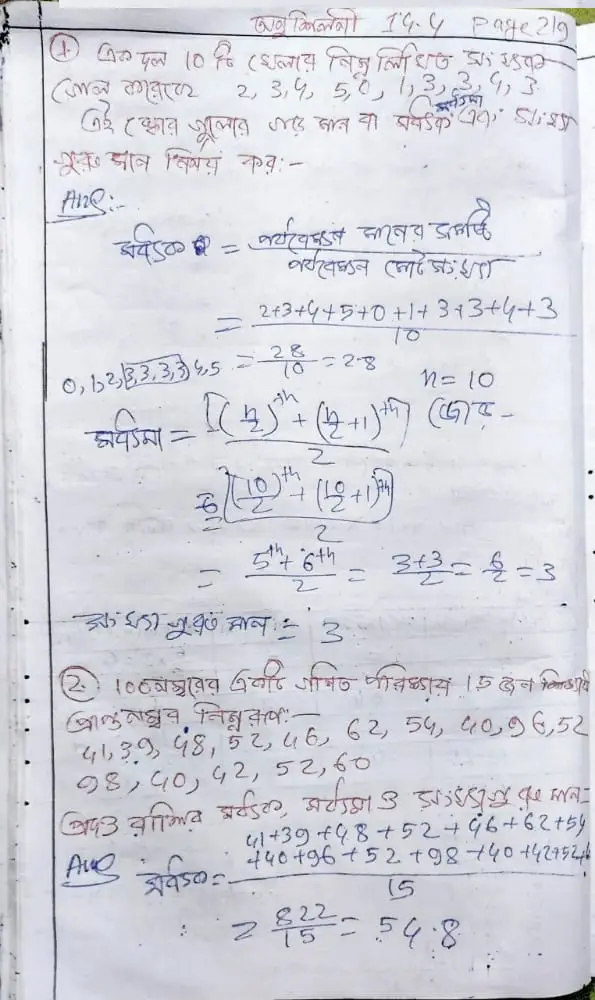 অনুশিলনী 14.4 Page 219
① একদল 10 টি খেলায় নিম্নলিখিত সংখ্যক
গোল করেছে 2, 3, 4, 5, 0, 1, 3, 3, 4, 3
এই স্কোর গুলোর গড় মান বা মধ্যক মধ্যমা এবং সংখ্যা
গুরু মান নির্ণয় কর:-
Ans:-
মধ্যক = পর্যবেক্ষণ মানের সমষ্টি
পর্যবেক্ষণ মোট সংখ্যা
= 2+3+4+5+0+1+3+3+4+3
10
0, 1, 2, 3, 3, 3, 3, 4, 5 = 28/10 = 2.8 n = 10
মধ্যমা = [(n/2)th + (n/2 + 1)th] / 2 জোর -
= [(10/2)th + (10/2 + 1)th] / 2
= 5th + 6th / 2 = 3+3/2 = 6/2 = 3
সংখ্যা গুরু মান = 3
②. 100 নম্বরের একটি গণিত পরিক্ষায় 15 জন শিক্ষার্থী
প্রাপ্ত নম্বর নিম্নরূপ:-
41, 39, 48, 52, 46, 62, 54, 40, 96, 52
98, 40, 42, 52, 60
প্রদত্ত রাশির মধ্যক, মধ্যমা ও সংখ্যাগুরু মান:-
41+39+48+52+46+62+54
Ans মধ্যক = +40+96+52+98+40+42+52+
15
= 822/15 = 54.8